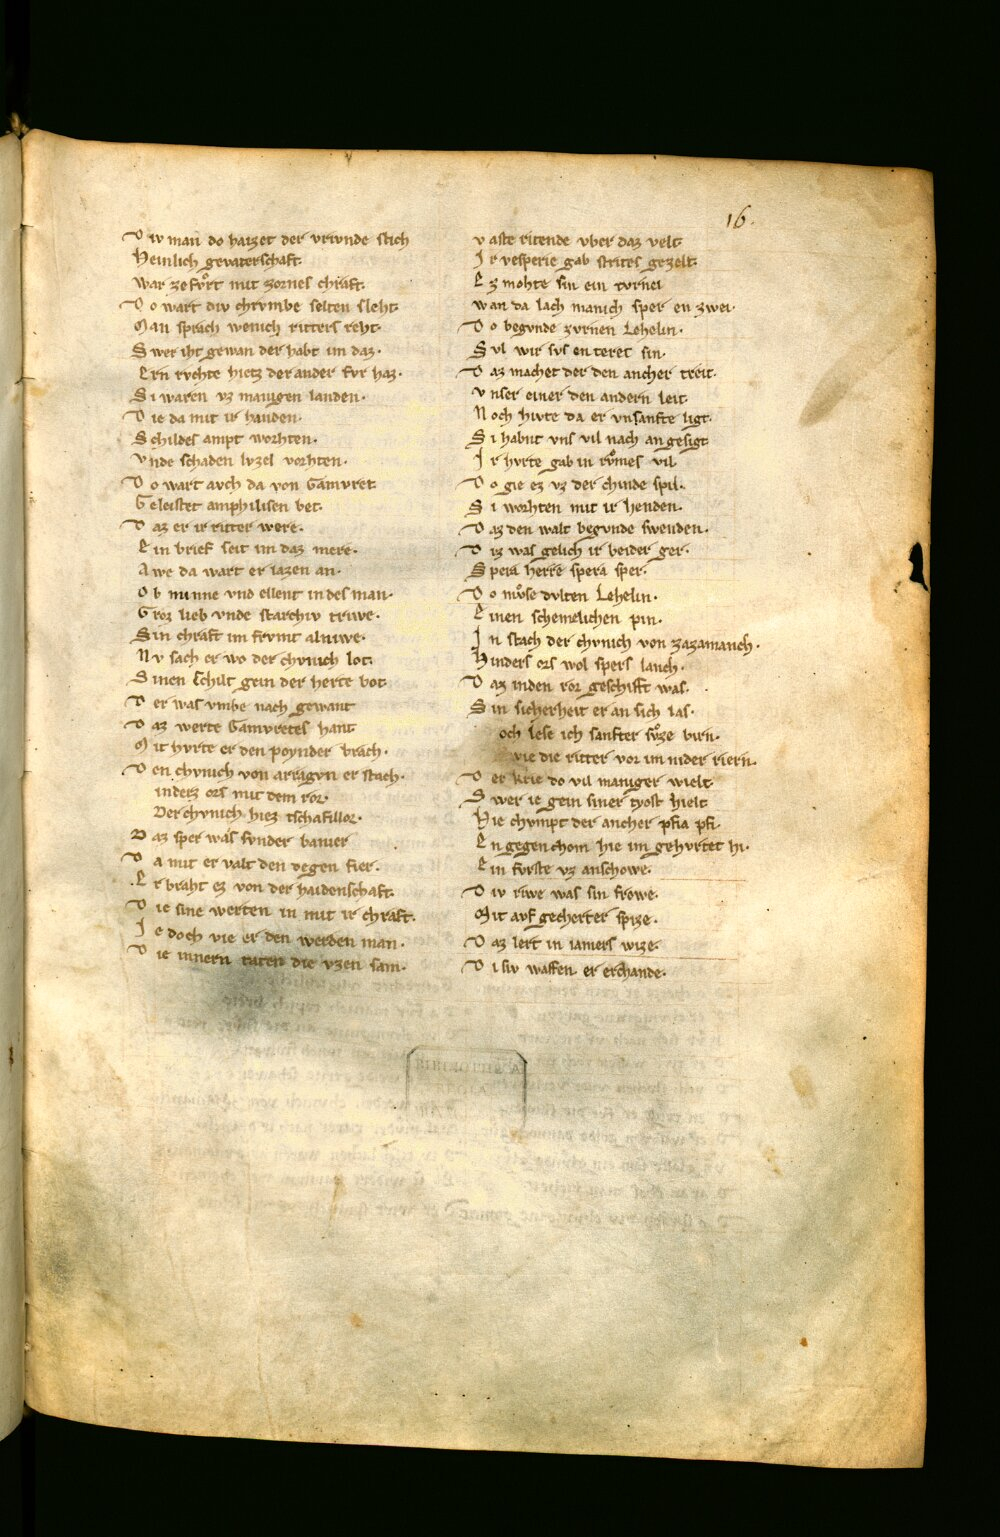 16.
D iv man do haizet der vrivnde stich
Heinlich gevaterschaft.
War zefvͦrt mit zornes chraft.
D o wart div chrvmbe selten sleht.
Man sprach wenich ritters reht.
S wer iht gewan der habt im daz.
Ern rvchte hietz der ander fvr haz.
S i waren vz manigen landen.
D ie da mit ir handen.
S childes ampt worhten.
V nde schaden lvzel vorhten.
D o wart avch da von Gamvret.
G eleistet amphilisen bet.
D az er ir ritter were.
E in brief seit im daz mere.
A we da wart er lazen an.
O b minne vnd ellent in des man.
G roz lieb vnde starchiv triwe.
S in chraft im frvmt al niwe.
N v sach er wo der chvnich lot.
S inen Schilt gein der herte bot.
D er was vmbe nach gewant
D az werte Gamvretes hant.
M it hvrte er den poynder brach.
D en chvnich von arragvn er stach.
inderz ors mit dem ror.
Der chvnich hiez tschafillor.
D az sper was svnder banier
D a mit er valt den degen fier.
E r braht ez von der haidenschaft.
D ie sine werten in mit ir chraft.
I e doch vie er den werden man.
D ie innern taten die vzen sam.
v aste ritende vber daz velt.
I r vesperie gab strites gezelt.
E z mohte sin ein tvrnei
wan da lach manich sper en zwei.
D o begvnde zvrnen Lehelin.
S vl wir svs enteret sin.
D az machet der den ancher treit.
V nser einer den andern leit.
N och hivte da er vnsanfte ligt.
S i habnt vns vil nach an gesigt.
I r hvrte gab in rvͦmes vil
D o gie ez vz der chinde spil.
S i worhten mit ir henden.
D az den walt begvnde swenden.
D iz was gelich ir beider ger.
S pera herre spera sper.
D o mvͦse dvlten Lehelin.
E inen schemelichen pin.
I n stach der chvnich von zazamanch.
Hinders ors wol spers lanch.
D az inden ror geschift was.
S in sicherheit er an sich las.
och lese ich sanfter svͦze birn.
wie die ritter vor im nider riern.
D er krie do vil maniger wielt.
S wer ie gein siner tyost hielt
Hie chvmpt der ancher pfia pfi.
E n gegen chom hie im gehvrtet hi.
E in fvrste vz anschowe.
D iv riwe was sin frowe.
Mit avf gecherter spize.
D az lert in iamers wize.
D isiv waffen er erchande.